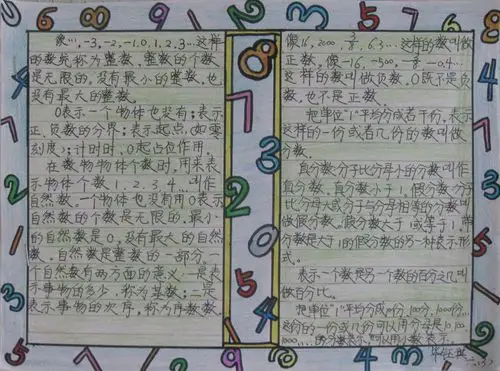 象…,-3,-2,-1.0,1,2,3…这样
的数统称为整数,整数的个数
是无限的,没有最小的整数,也
没有最大的整数。
0表示一个物体也没有;表示
正、负数的分界;表示起点,(如零
刻度);计时时,0起占位作用。
在数物物体个数时,用来表
示物体个数1、2、3、4…叫作
自然数,一个物体也没有用0表示
自然数的个数是无限的,最小
的自然数是0,没有最大的自然
数,自然数是整数的一部分,一
个自然数有两方面的意义:一是表
示事物的多少,称为基数;二是
表示事物的次序,称为序数。
8
7
3
2
0
4
像16,2000,3/8,6.3…这样的数叫做
正数,像-16,-500,-0.4…
这样的数叫做负数,0既不是负
数,也不是正数。
把单位"1"平均分成若干份,表示
这样的一份或者几份的数叫做
分数。
真分数分子比分母小的分数叫作
真分数,真分数小于1,假分数分子
比分母大或分子与分母相等的分数叫
做假分数。假分数大于1或等于1,带
分数是大于1的假分数的另一种表示形
式。
表示一个数是另一个数的百分之几叫
做百分比。
把单位"1"平均分成10份,100份,1000份…
这份的一份或几份可以用分母是10,100,
1000,…的分数表示,可以用小数表示。